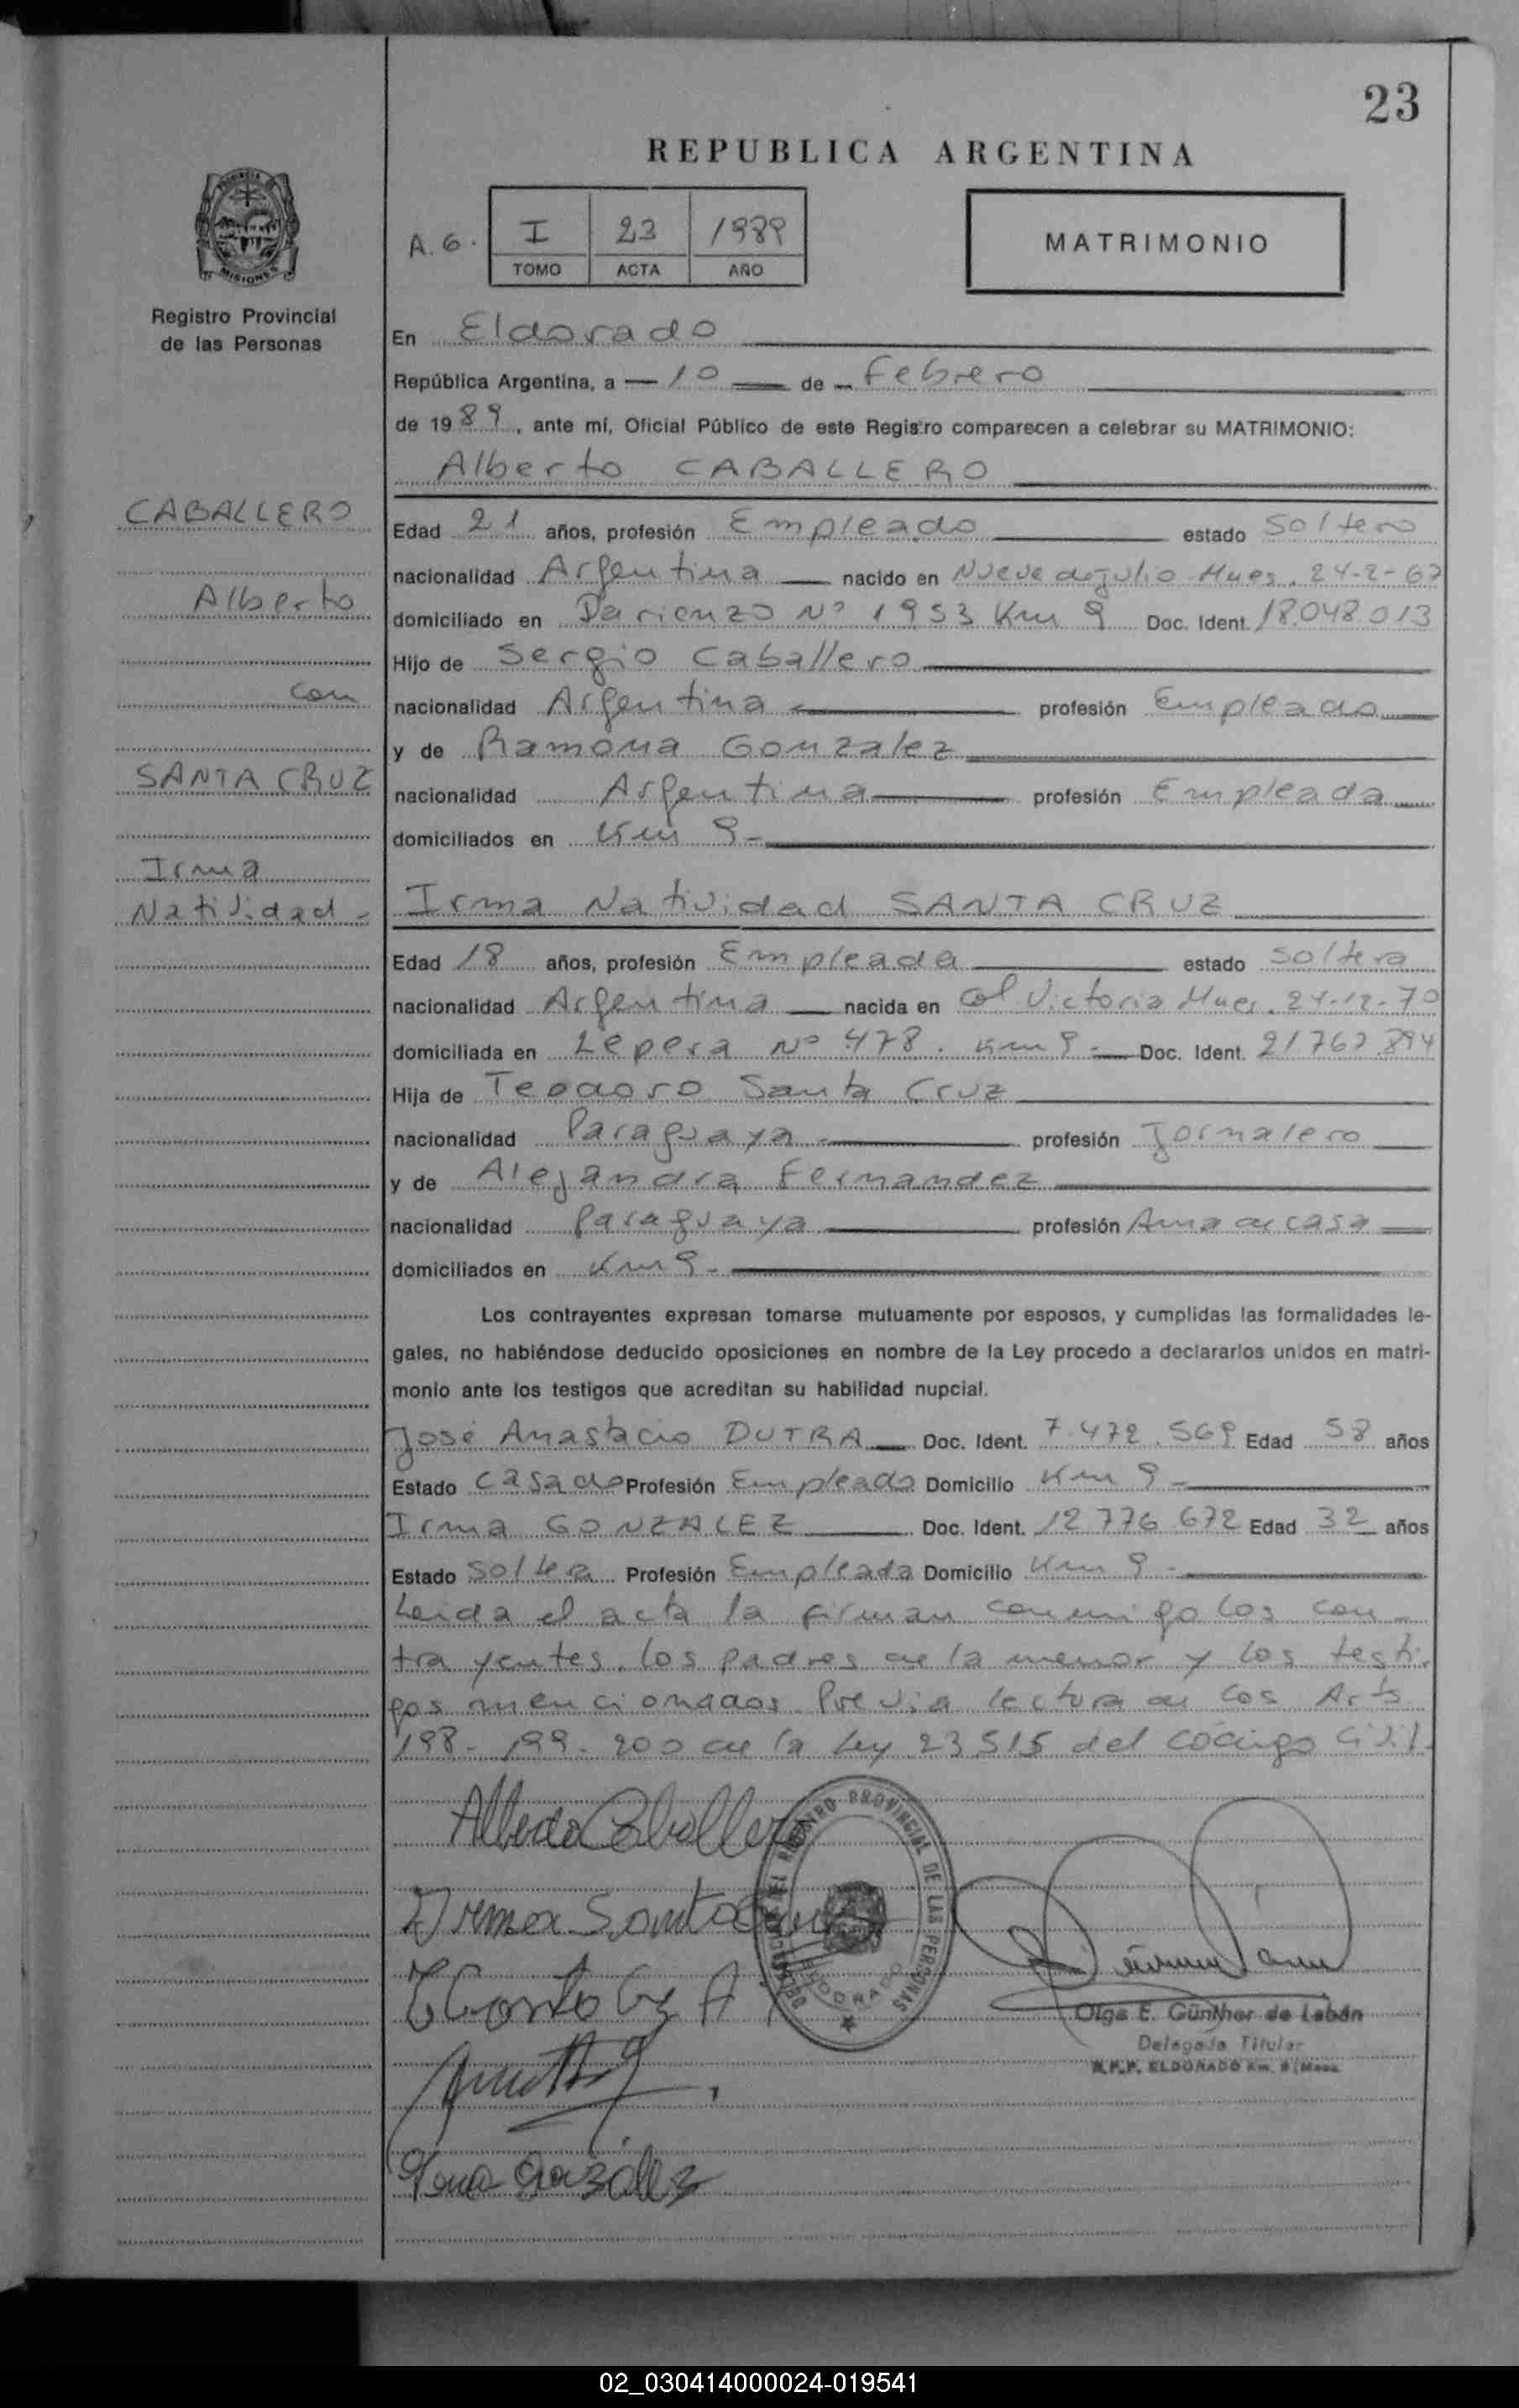 23
REPUBLICA ARGENTINA
PROVINCIA DE
MISIONES
Registro Provincial
de las Personas
A. G. I 23 1989
TOMO ACTA AÑO
MATRIMONIO
En Eldorado
República Argentina, a 10 de Febrero
de 1989, ante mí, Oficial Público de este Registro comparecen a celebrar su MATRIMONIO:
Alberto CABALLERO
CABALLERO
Alberto
con
SANTA CRUZ
Irma
Natividad -
Edad 21 años, profesión Empleado estado Soltero
nacionalidad Argentina nacido en Nueve de Julio Mnes. 24-2-67
domiciliado en Darienzo Nº 1953 Km 9 Doc. Ident. 18.048.013
Hijo de Sergio Caballero
nacionalidad Argentina profesión Empleado
y de Ramona Gonzalez
nacionalidad Argentina profesión Empleada
domiciliados en Km 9-
Irma Natividad SANTA CRUZ
Edad 18 años, profesión Empleada estado Soltera
nacionalidad Argentina nacida en Col Victoria Mnes. 24-12-70
domiciliada en Lepera Nº 478. Km 9- Doc. Ident. 21767.894
Hija de Teodoro Santa Cruz
nacionalidad Paraguaya profesión Jornalero
y de Alejandra Fernandez
nacionalidad Paraguaya profesión Ama de casa
domiciliados en Km 9-
Los contrayentes expresan tomarse mutuamente por esposos, y cumplidas las formalidades le-
gales, no habiéndose deducido oposiciones en nombre de la Ley procedo a declararlos unidos en matri-
monio ante los testigos que acreditan su habilidad nupcial.
José Anastacio DUTRA Doc. Ident. 7.472.569 Edad 58 años
Estado Casado Profesión Empleado Domicilio Km 9-
Irma GONZALEZ Doc. Ident. 12776672 Edad 32 años
Estado Soltera Profesión Empleada Domicilio Km 9-
Leida el acta la firman conmigo los con-
trayentes, los padres de la menor y los testi-
gos mencionados. Previa lectura de los Arts
198-199-200 de la Ley 23515 del código Civil-
REGISTRO PROVINCIAL DE LAS PERSONAS
ELDORADO
Irma Santa Cruz
Irma Gonzalez
Olga E. Günther de Labán
Delegada Titular
R.P.P. ELDORADO Km. 9 (Mnes.
02_030414000024-019541